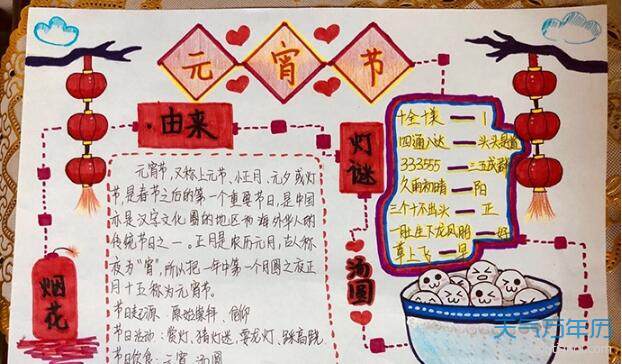 元宵节
由来
元宵节,又称上元节、小正月、元夕或灯
节,是春节之后的第一个重要节日,是中国
亦是汉字文化圈的地区和海外华人的
传统节日之一。正月是农历元月,古人称
夜为"宵",所以把一年中第一个月圆之夜正
月十五称为元宵节。
节日起源:原始崇拜,信仰
节日活动:赏灯、猜灯迷、耍龙灯、踩高跷
节日饮食:元宵 汤圆
灯谜
十全十美 — 1
四通八达 — 头头是道
333555 — 三五成群
久雨初晴 — 阳
三个十不出头 — 正
一胜生下龙凤胎 — 好
草上飞 — 早
汤圆
烟花
天气万年历